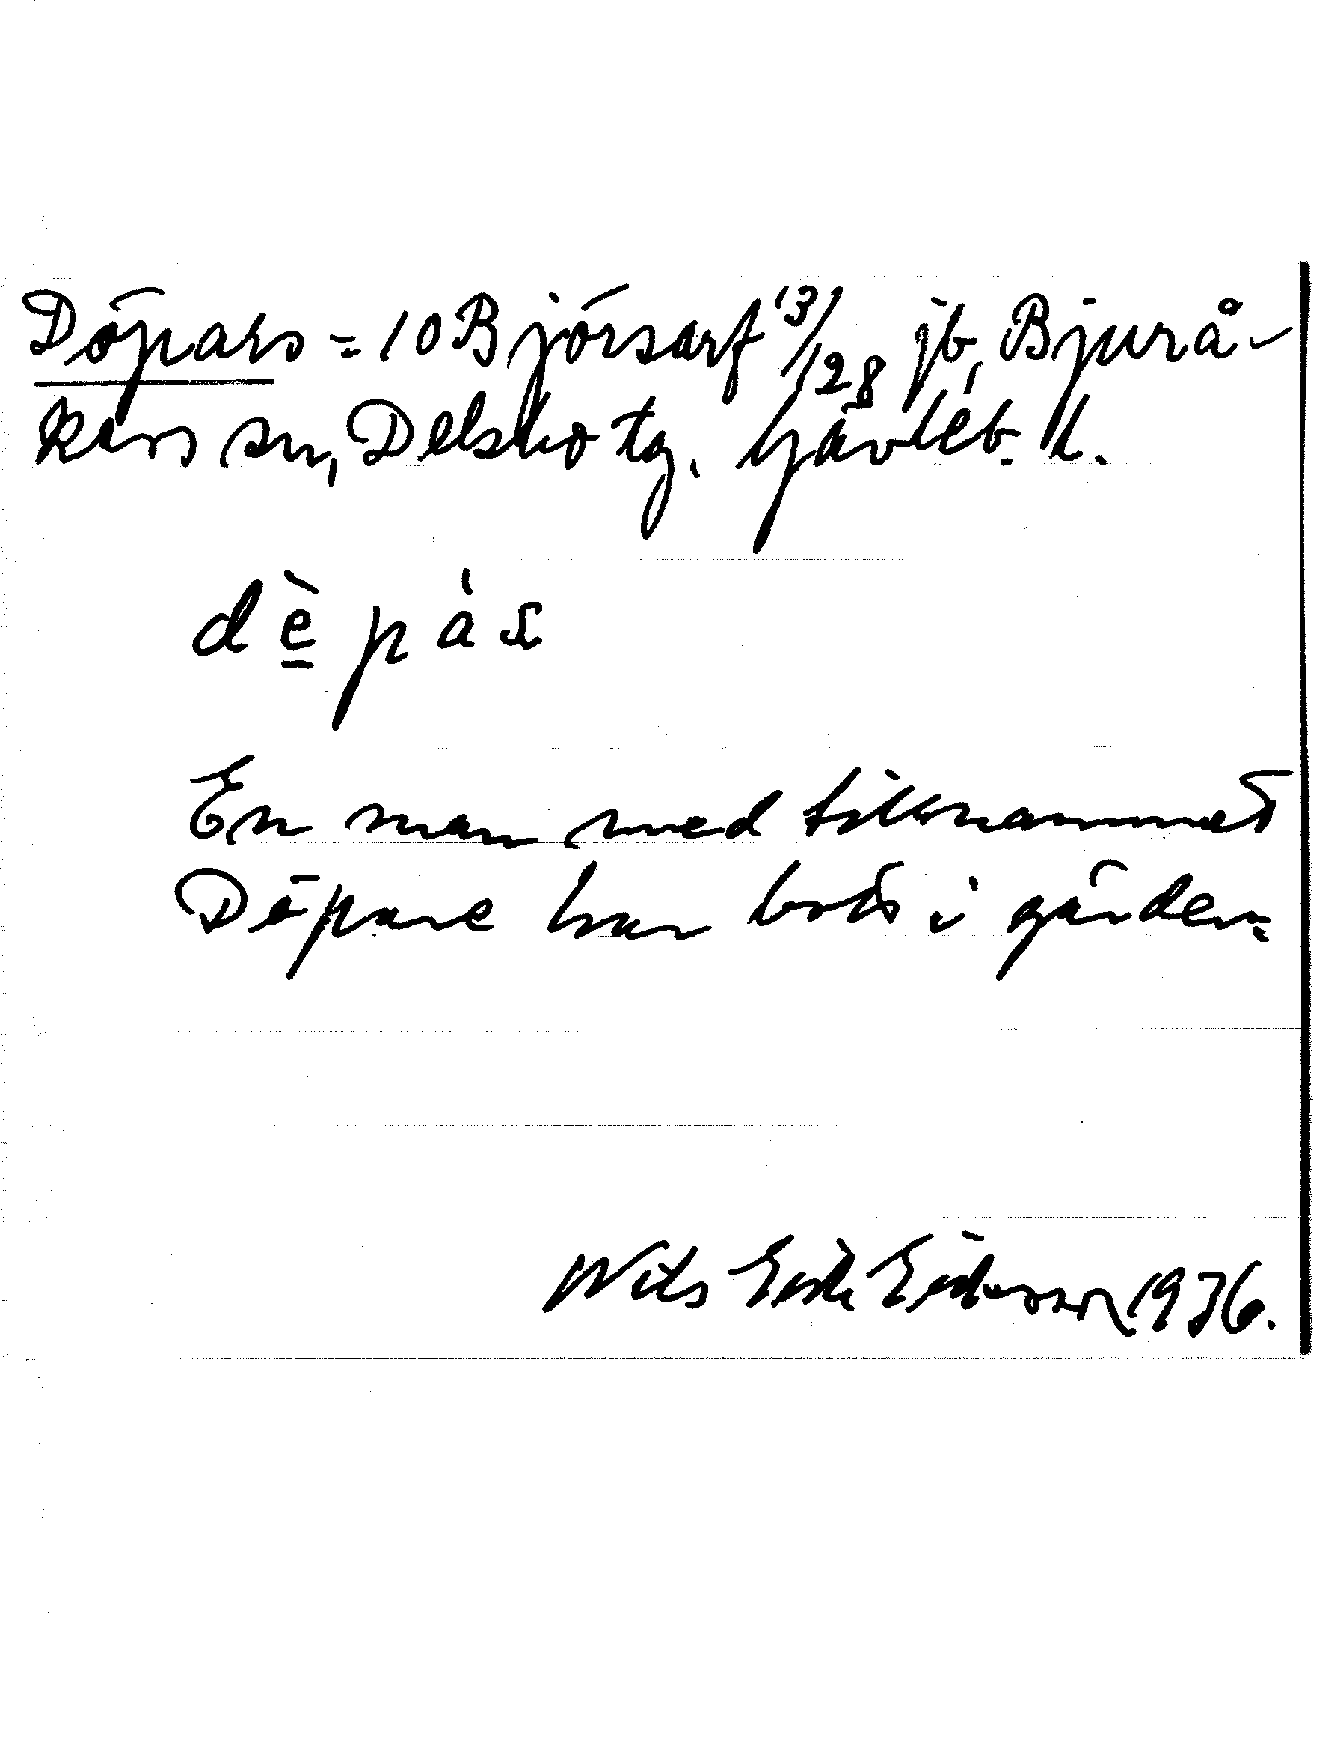 Döpars = 10 Björsarf 13/128 jb, Bjurå-
kers sn, Delsbo tg. Gävleb. l.
dè̱pàs
En man med tillnamnet
Döpare har bott i gården.
Nils Erik Eriksson 1936.